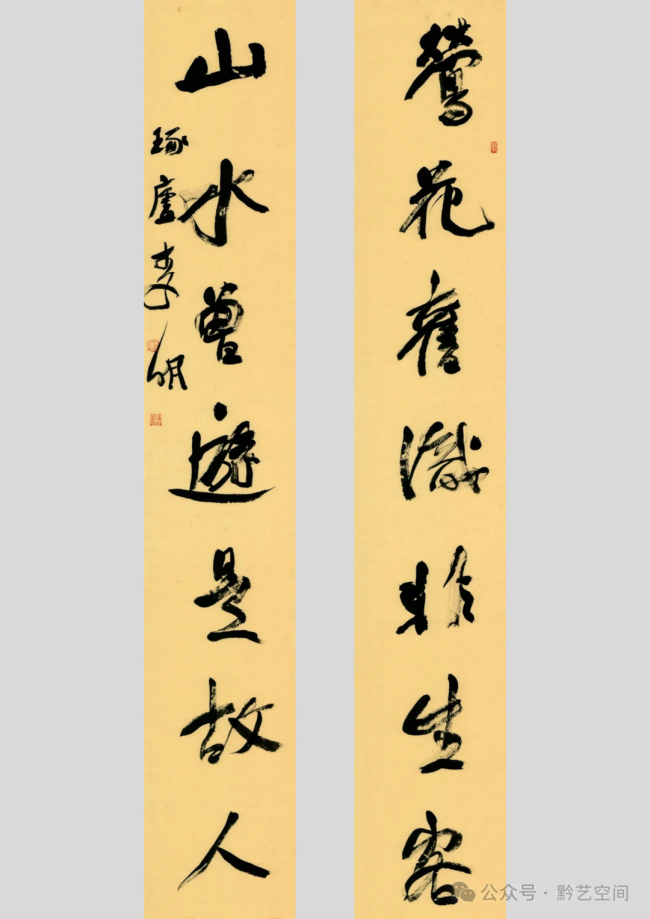 鶯花舊識非生客
山水曾遊是故人
琢廬李明
公众号·黔艺空间